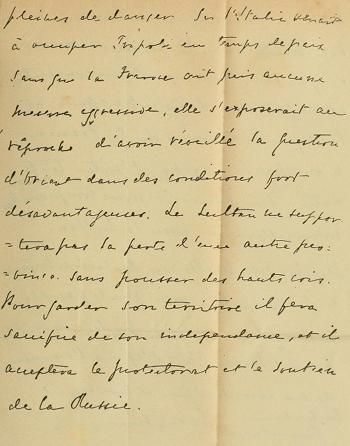 pleines de danger. Si l'Italie venait
à occuper Tripoli en temps de paix
sans que la France ait pris aucune
mesure aggressive, elle s'exposerait au
reproche d'avoir réveillé la question
d'Orient dans des conditions fort
désavantageuses. Le Sultan ne suppor
=tera pas la perte d'une autre pro:
=vince sans pousser des hauts cris.
Pour garder son territoire il fera
sacrifice de son indépendance, et il
acceptera le protectorat et le soutien
de la Russie.